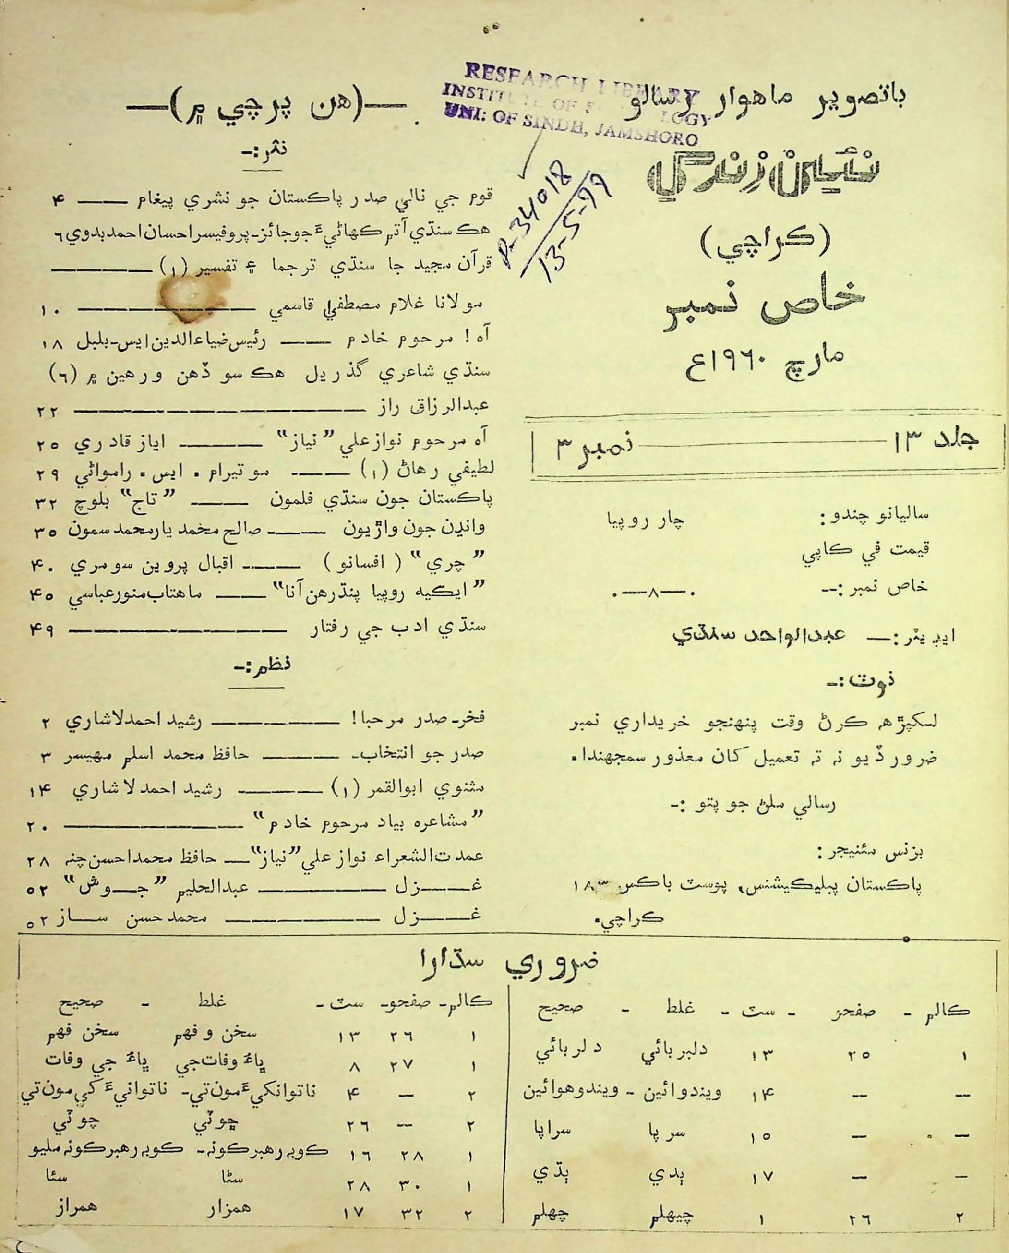 باتصوير ماهوار رسالو
نئين زندگي
(ڪراچي)
خاص نمبر
مارچ ۱۹٦۰ع
جلد ۱۳ نمبر ۳
ساليانو چندو: چار روپيا
قيمت في ڪاپي
خاص نمبر :-- ۰—۸—۰
ايڊيٽر:— عبدالواحد سنڌي
نوٽ:-
لکپڙهه ڪرڻ وقت پنهنجو خريداري نمبر
ضرور ڏيو نہ تہ تعميل کان معذور سمجهندا.
رسالي ملڻ جو پتو :-
بزنس مئنيجر:
پاڪستان پبليڪيشنس، پوسٽ باڪس ۱۸۳
ڪراچي.
RESEARCH LIBRARY
INSTITUTE OF LOGY
UNI: OF SINDH, JAMSHORO
P-34018
13-5-99
—(هن پرچي ۾)—
نثر:-
قوم جي نالي صدر پاڪستان جو نشري پيغام —— ۴
هڪ سنڌي آتم ڪهاڻيءَ جو جائزـ پروفيسر احسان احمد بدوي ٦
قرآن مجيد جا سنڌي ترجما ۽ تفسير (۱) ————
مولانا غلام مصطفيٰ قاسمي ———— ۱۰
آه! مرحوم خادم —— رئيس ضياءالدين ايس-بلبل ۱۸
سنڌي شاعري گذريل هڪ سو ڏهن ورهين ۾ (٦)
عبدالرزاق راز ———— ۲۲
آه مرحوم نواز علي ”نياز“ ——— اياز قادري ۲۵
لطيفي رهاڻ (۱) —— موتيرام . ايس . راموائي ۲۹
پاڪستان جون سنڌي فلمون —— ”تاج“ بلوچ ۳۲
واندن جون واڙيون —— صالح محمد يار محمد سمون ۳۵
”چري“ (افسانو) —— اقبال پروين سومري ۴۰
”ايڪيه روپيا پنڌرهن آنا“ —— ماهتاب منور عباسي ۴۵
سنڌي ادب جي رفتار ———— ۴۹
نظم:-
فخرـ صدر مرحبا! ——— رشيد احمد لاشاري ۲
صدر جو انتخاب- ——— حافظ محمد اسلم مهيسر ۳
مثنوي ابوالقمر (۱) ——— رشيد احمد لاشاري ۱۴
”مشاعره بياد مرحوم خادم“ ———— ۲۰
عمدت الشعراء نواز علي ”نياز“— حافظ محمد احسن چنہ ۲۸
غــزل ———— عبدالحليم ”جــوش“ ۵۲
غــزل ———— محمد حسن ســاز ۵۲
ضروري سڌارا
ڪالم - صفحو - سٽ - غلط - صحيح
۱ ۲۵ ۱۳ دلبربائي دلربائي
-- -- ۱۴ ويندوائين - ويندوهوائين
— — ۱۵ سرپا سراپا
— — ۱۷ ٻدي ٻڌي
۲ ۲٦ ۱ چيهلم چهلم
ڪالم- صفحو- سٽ - غلط - صحيح
۱ ۲٦ ۱۳ سخن و فهم سخن فهم
۱ ۲۷ ۸ ڀاءُ وفات جي ڀاءُ جي وفات
۲ — ۴ ناتوانکيءَ مون تي- ناتوانيءَ کي مون تي
۲ -- ۲٦ چوٽي چوٽي
۱ ۲۸ ۱٦ ڪوبہ رهبر ڪونہ- ڪوبہ رهبر ڪونہ مليو
۱ ۳۰ ۲۸ سٹا سئا
۲ ۳۲ ۱۷ همزار همراز